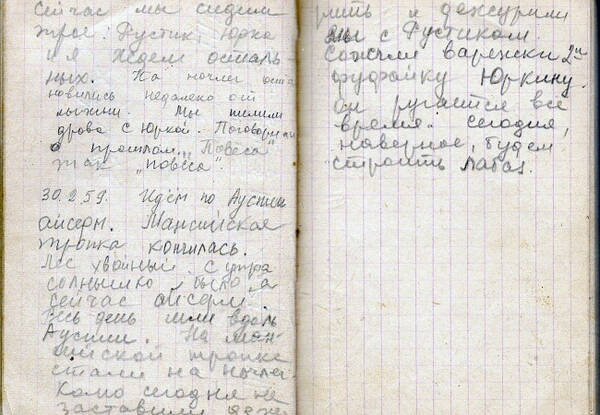 сейчас мы сидим
трое: Рустик, Юрка
и я ждем осталь-
ных. На ночлег оста
новились недалеко от
лыжни. Мы пилили
дрова с Юркой. Поговорили
о прошлом. "Повеса"
так "повеса".
30.2.59. Идем по Ауспии
айсерм. Мансийская
тропка кончилась.
Лес хвойный. С утра
солнышко было, а
сейчас айсерм.
Весь день шли вдоль
Ауспии. На ман-
сийской тропке
стали на ночлег.
Колю сегодня не
заставили деже
рить и дежурили
мы с Рустиком
Сожгли варежки 2ю
фуфайку Юркину.
Он ругается все
время. Сегодня,
наверное, будем
строить лабаз.